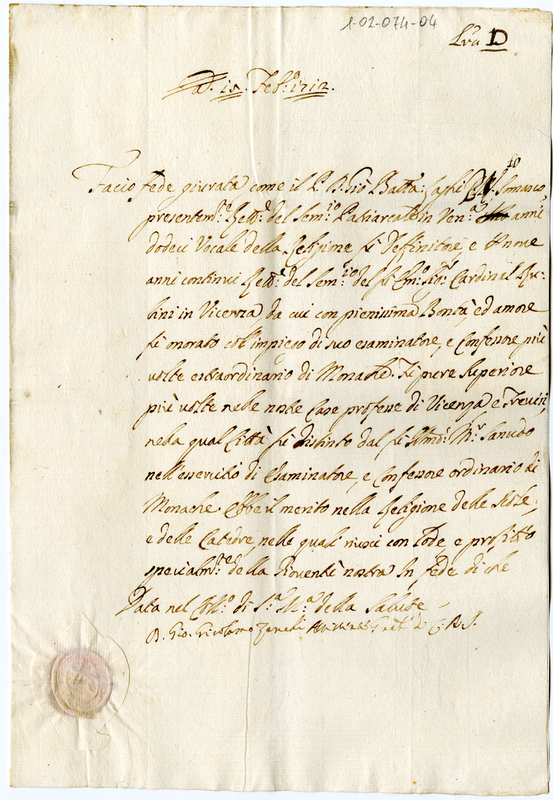 1-02-074-04
Lra D
Feb.º 1712.
Faccio fede giurata come il P. D. Gio Batta:
presentem.te Rett.e del Sem.rio Patriarcale in Ven.a anni
dodeci Vocale della Religione fù Definitore e
anni continui Rett.e del Sem.rio del fù Em.o Sig.r Cardinal Ru-
bini in Vicenza da cui con pienissima Bontà, ed amore
fù onorato coll'impiego di suo esaminatore, e Confessore più
volte estraordinario di Monache. Fù pure Superiore
più volte nelle nostre Case professe di Vicenza, e Trevisi,
nella qual Città fù distinto dal fù M.r Sanudo
nell'essercitio di Esaminatore, e Confessore ordinario di
Monache Ebbe il merito nella Religione delle
e delle Catedre, nelle quali riuscì con lode, e profitto
specialm.te della Gioventù nostra In fede di che
Data nel Coll.o di S.a M.a della Salute
D. Gio. Girolamo Zanchi C. R. S.